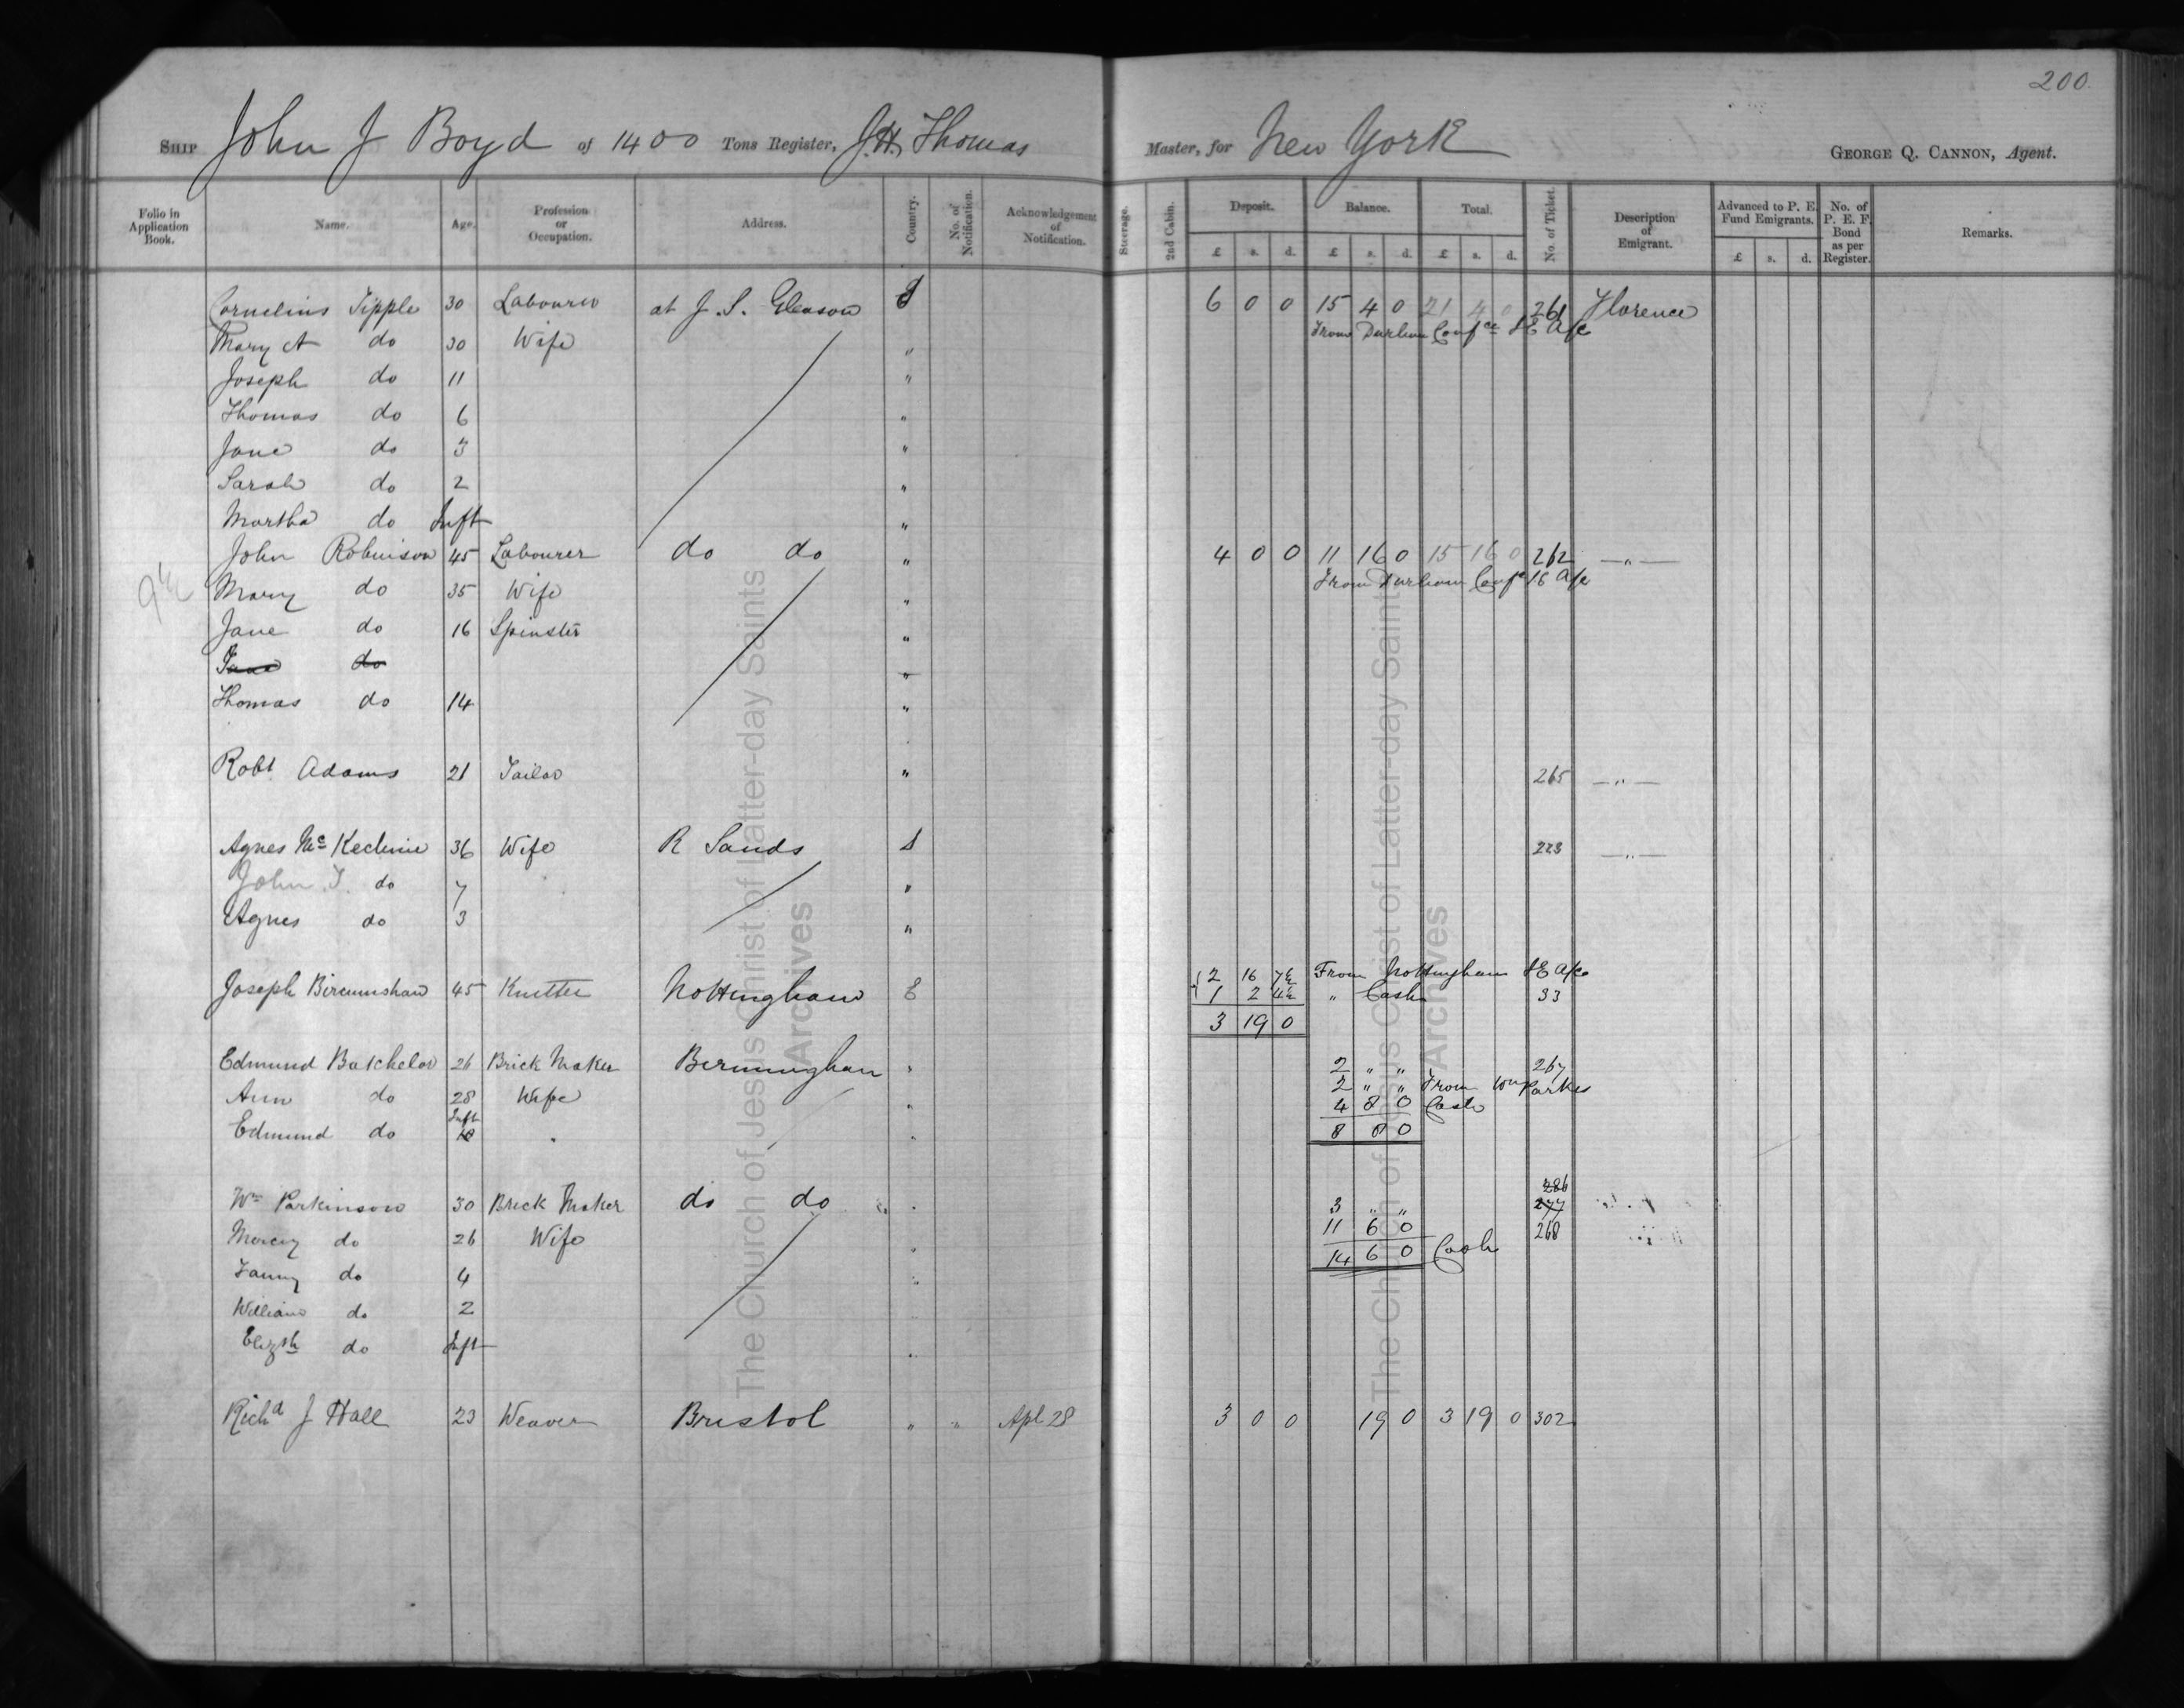 200
SHIP John J Boyd of 1400 Tons Register, J. H. Thomas Master, for New York GEORGE Q. CANNON, Agent.
Folio in Application Book. Name. Age. Profession or Occupation. Address. Country. No. of Notification. Acknowledgement of Notification. Steerage. 2nd Cabin. Deposit. Balance. Total. No. of Ticket. Description of Emigrant. Advanced to P. E. Fund Emigrants. No. of P. E. F. Bond as per Register. Remarks.
£ s. d. £ s. d. £ s. d. £ s. d.
Cornelius Tipple 30 Labourer at J. S. Gleason 6 0 0 15 4 0 21 4 0 261 Florence
From Durham Confce I E A/c
Mary A do 30 Wife "
Joseph do 11 "
Thomas do 6 "
Jane do 3 "
Sarah do 2 "
Martha do Inft "
John Robinson 45 Labourer do do " 4 0 0 11 16 0 15 16 0 262 — " —
From Durham Confce A/c
Mary do 35 Wife "
Jane do 16 Spinster "
Jane do "
Thomas do 14 "
Robt Adams 21 Tailor " 265 — " —
Agnes Mc Kechnie 36 Wife R Sands S 223 — " —
John T. do 7 "
Agnes do 3 "
2 16 7½ From Nottingham I E A/c
Joseph Bircumshaw 45 Knitter Nottingham E 1 2 4½ " Cash 33
3 19 0
Edmund Batchelor 26 Brick Maker Birmingham " 2 " " 267
2 " " From Wm Parkes
Ann do 28 Wife " 4 8 0 Cash
Inft
Edmund do " 8 8 0
286
Wm Parkinson 30 Brick Maker do do " 3 " " 277
11 6 0 268
Mercy do 26 Wife " 14 6 0 Cash
Fanny do 4 "
William do 2 "
Elizth do Inft "
Richd J Hall 23 Weaver Bristol " " Apl 28 3 0 0 19 0 3 19 0 302
The Church of Jesus Christ of Latter-day Saints
Archives
The Church of Jesus Christ of Latter-day Saints
Archives